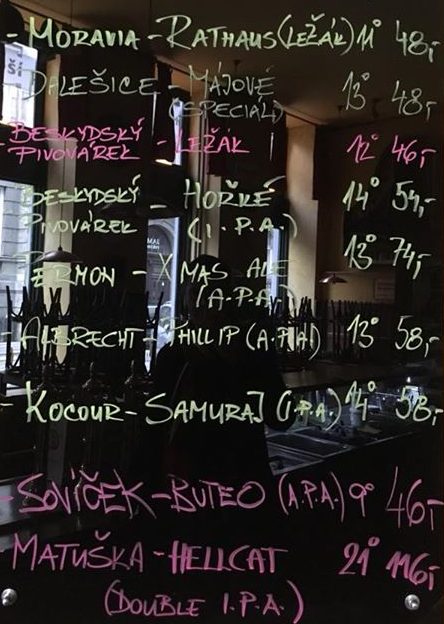 - MORAVIA - RATHAUS (LEŽÁK) 11° 48,-
DALEŠICE - MÁJOVÉ 13° 48,-
(SPECIÁL)
- BESKYDSKÝ PIVOVÁREK - LEŽÁK 12° 46,-
BESKYDSKÝ PIVOVÁREK - HOŘKÉ 14° 54,-
(I.P.A.)
PERMON - XMAS ALE 13° 74,-
(A.P.A.)
- ALBRECHT - PHILLIP (A.P.A.) 13° 58,-
- KOCOUR - SAMURAJ (I.P.A.) 14° 58,-
- SOVÍČEK - BUTEO (A.P.A.) 9° 46,-
- MATUŠKA - HELLCAT 21° 116,-
(DOUBLE I.P.A.)